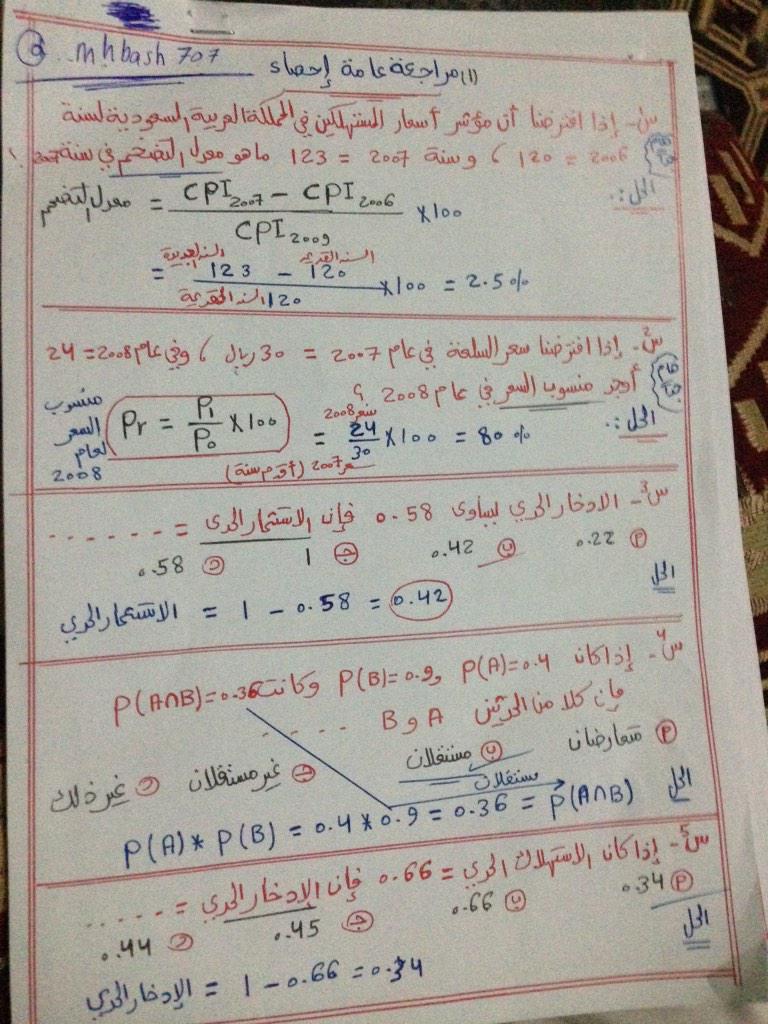 mhbash 707
(١) مراجعة عامة إحصاء
س١- إذا افترضنا أن مؤشر أسعار المستهلكين في المملكة العربية السعودية لسنة
2006 = 120 ، وسنة 2007 = 123 ما هو معدل التضخم في سنة 2007 ؟
هام جداً
الحل :.
معدل التضخم = CPI2007 - CPI2006 / CPI2009 × 100
السنة الجديدة السنة القديمة
= 123 - 120 / 120 × 100 = 2.5 %
السنة القديمة
س٢- إذا افترضنا سعر السلعة في عام 2007 = 30 ريال ، وفي عام 2008 = 24
أوجد منسوب السعر في عام 2008 ؟
هام جداً
الحل :.
منسوب السعر لعام 2008
Pr = P1 / P0 × 100
سعر 2008
= 24 / 30 × 100 = 80 %
سعر 2007 (أقدم سنة)
س٣- الادخار الحدي يساوى 0.58 فإن الاستثمار الحدى = ......
أ 0.22 ب 0.42 ج 1 د 0.58
الحل
الاستثمار الحدي = 1 - 0.58 = 0.42
س٤- إذا كان P(A)=0.4 و P(B)=0.9 وكانت P(A∩B)=0.36
فإن كلا من الحدثين A و B .....
أ متعارضان ب مستقلان ج غير مستقلان د غير ذلك
الحل
مستقلان
P(A) * P(B) = 0.4 * 0.9 = 0.36 = P(A∩B)
س٥- إذا كان الاستهلاك الحدي = 0.66 فإن الإدخار الحدي = .....
أ 0.34 ب 0.66 ج 0.45 د 0.44
الحل
الإدخار الحدي = 1 - 0.66 = 0.34